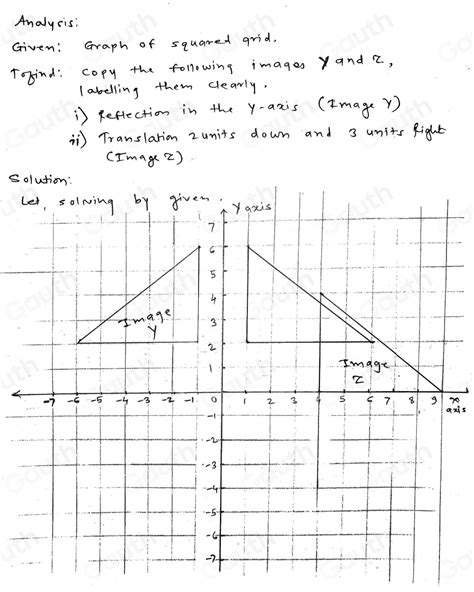 Analysis:
Given: Graph of squared grid.
Tofind: Copy the following images Y and Z,
labelling them clearly.
i) Reflection in the Y-axis (Image Y)
ii) Translation 2 units down and 3 units Right
(Image Z)
Solution:
Let, solving by given.
Y axis
7
6
5
4
3
2
1
Image
Y
Image
Z
-7 -6 -5 -4 -3 -2 -1 0 1 2 3 4 5 6 7 8 9 x
axis
-1
-2
-3
-4
-5
-6
-7
Gauth